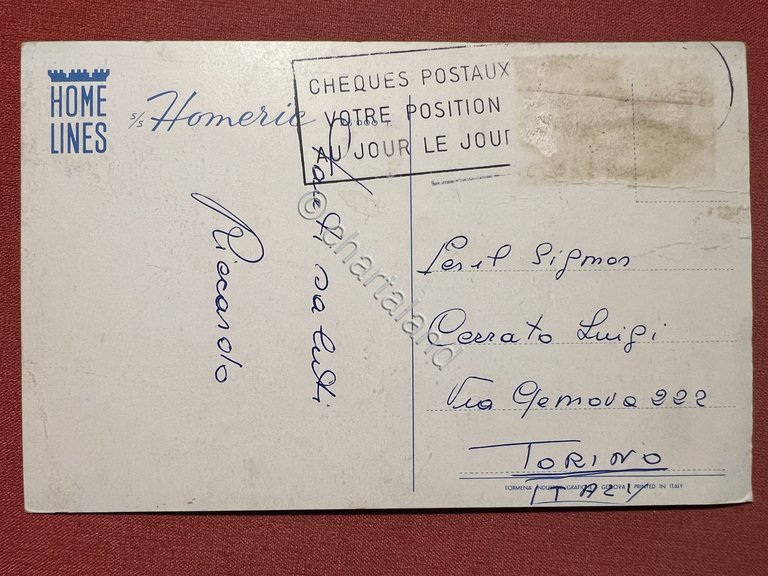 HOME
LINES
s/s Homeric
26'000 T.
CHEQUES POSTAUX
VOTRE POSITION
AU JOUR LE JOUR
Tanti saluti
Riccardo
© Chartaland
Gent. Signor
Cerrato Luigi
Via Genova 222
TORINO
ITALY
TORMENA INDUSTRIE GRAFICHE GENOVA PRINTED IN ITALY